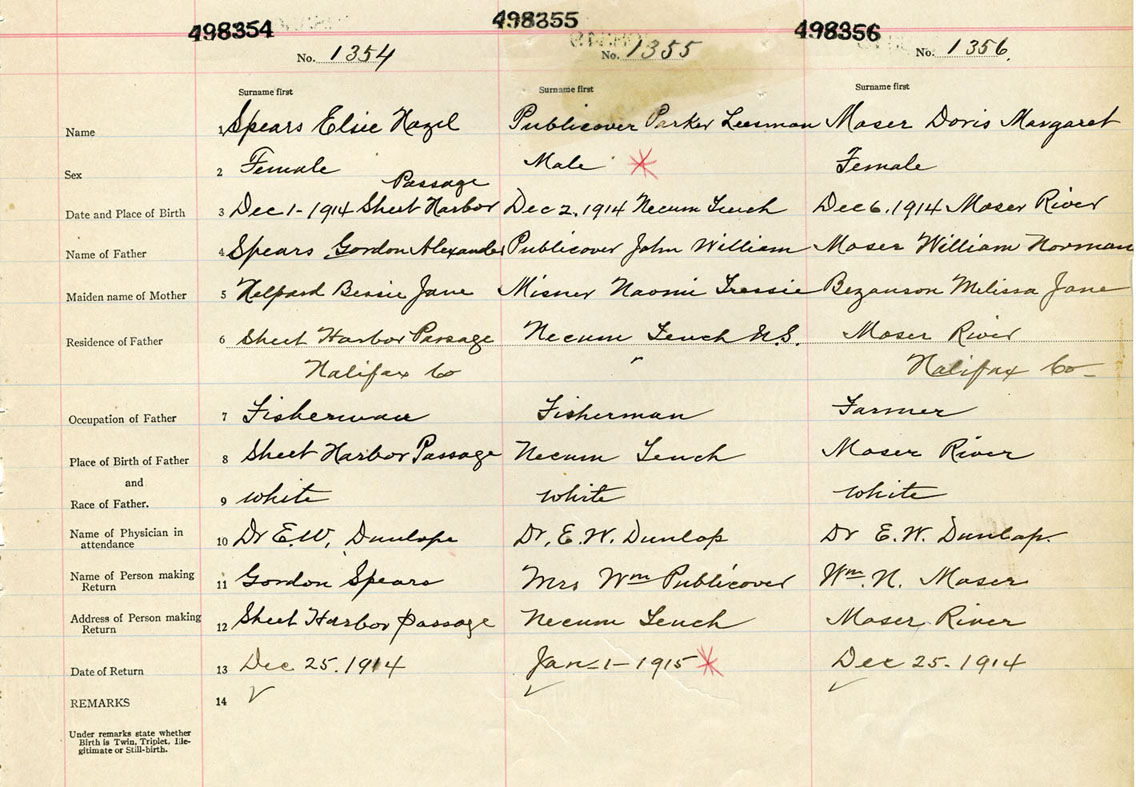 498354 498355 498356
No. 1354 No. 1355 No. 1356
Surname first Surname first Surname first
Name 1 Spears Elsie Hazel Publicover Parker Leesman Moser Doris Margaret
Sex 2 Female Male Female
Passage
Date and Place of Birth 3 Dec 1-1914 Sheet Harbor Dec 2, 1914 Necum Teuch Dec 6, 1914 Moser River
Name of Father 4 Spears Gordon Alexander Publicover John William Moser William Norman
Maiden name of Mother 5 Helpard Bessie Jane Misner Naomi Tressie Bezanson Melissa Jane
Residence of Father 6 Sheet Harbor Passage Necum Teuch N.S. Moser River
Halifax Co " Halifax Co
Occupation of Father 7 Fisherman Fisherman Farmer
Place of Birth of Father 8 Sheet Harbor Passage Necum Teuch Moser River
and
Race of Father. 9 white white white
Name of Physician in
attendance 10 Dr E.W. Dunlop Dr. E.W. Dunlap Dr E.W. Dunlap.
Name of Person making
Return 11 Gordon Spears Mrs Wm Publicover Wm. N. Moser
Address of Person making
Return 12 Sheet Harbor Passage Necum Teuch Moser River
Date of Return 13 Dec 25. 1914 Jan-1-1915 Dec 25. 1914
REMARKS 14
Under remarks state whether
Birth is Twin, Triplet, Ille-
gitimate or Still-birth.